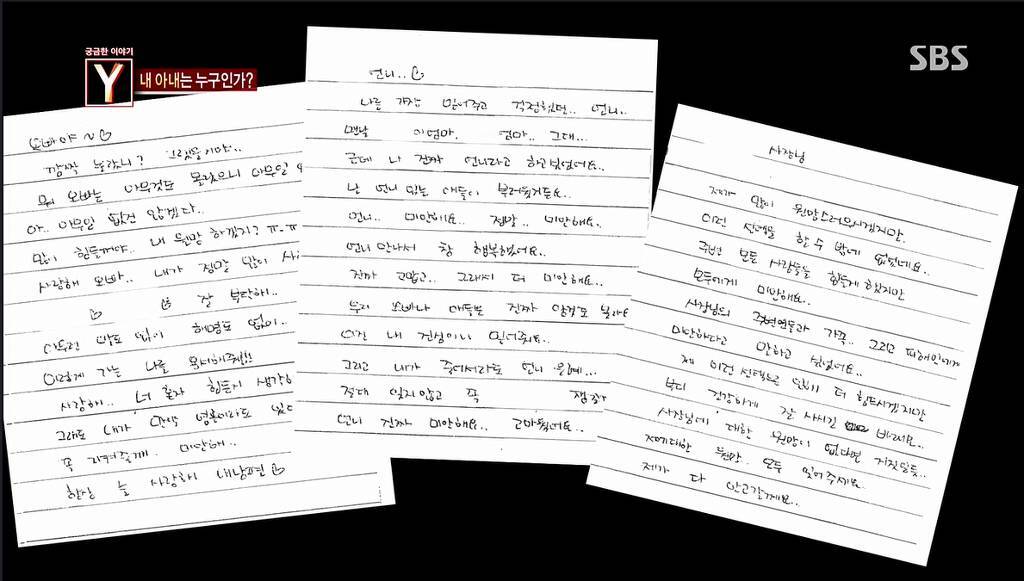 궁금한 이야기
Y
내 아내는 누구인가?
SBS
오빠야~♡
깜짝 놀랐니? 그랬을거야..
뭐 오빠는 아무것도 몰랐으니 아무일
아.. 아무일 없진 않겠다..
많이 힘들꺼야.. 내 원망 하겠지? ㅠ.ㅠ
사랑해 오빠.. 내가 정말 많이
♡ ♡ 잘 부탁해..
아무런 말도 없이 해명도 없이..
이렇게 가는 나를 용서해줘!!
사랑해.. 너 혼자 힘든지
그래도 내가 만약 영혼이라도 있다
꼭 지켜줄게.. 미안해..
항상 늘 사랑해 내남편♡
언니..♡
나를 가장 믿어주고 걱정했던.. 언니..
맨날 이엄마. 엄마.. 그대...
근데 나 진짜 언니라고 하고싶었어요..
난 언니 있는 애들이 부러웠거든요..
언니.. 미안해요.. 정말.. 미안해요..
언니 만나서 참 행복했어요..
진짜 고맙고.. 그래서 더 미안해요..
우리 오빠나 애들도 진짜
이건 내 진심이니 믿어줘요..
그리고 내가 죽어서라도 언니 위해...
절대 잊지않고 꼭
언니 진짜 미안해요.. 고마웠어요..
사장님
제가 많이 원망스러우시겠지만.
이런 선택을 할 수 밖에 없었네요..
주변 모든 사람들을 힘들게 하였지만
모두에게 미안해요..
사장님의 주변분들과 가족.. 그리고 피해인에게
미안하다고 말하고 싶었어요..
제 이런 선택으로 인해 더 힘드시겠지만
부디 건강하게 잘 사시길 바래요..
사장님에 대한 원망이 없다면 거짓말뜻..
저에대한 원망.. 모두 잊어주세요..
제가 다 안고갈게요..